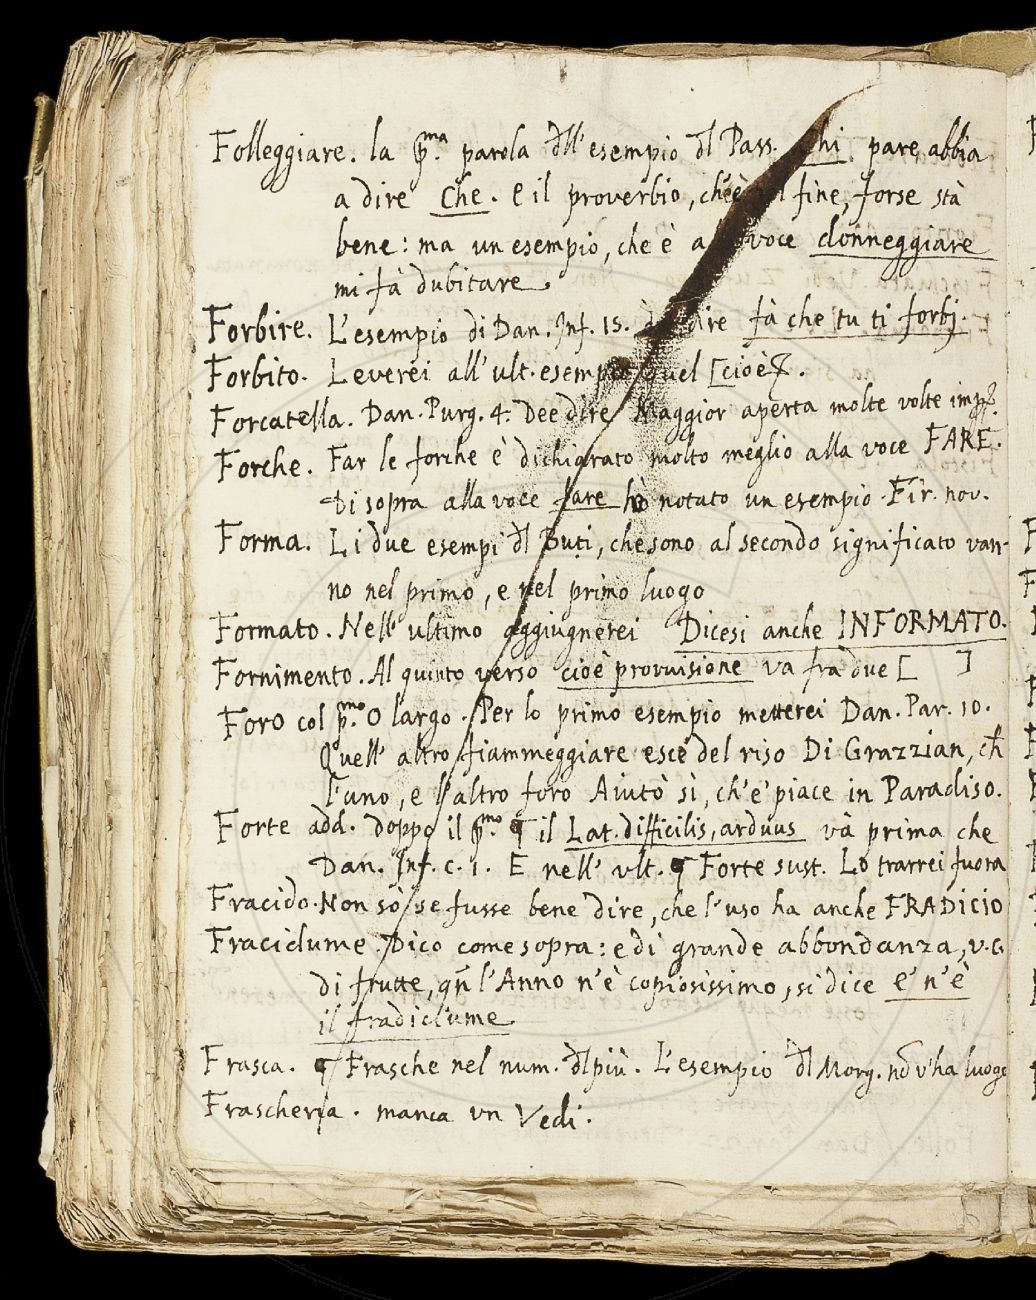 Folleggiare. la p.ma parola dll' esempio dl Pass. Chi pare, abbia
a dire Che. E il proverbio, ch'è fine, forse stà
bene: ma un esempio, che è a voce donneggiare
mi fà dubitare.
Forbire. L'esempio di Dan. Inf. 15. dire fà che tu ti forbj.
Forbito. Leverei all' ult. esempio quel [cioè
Forcatella. Dan. Purg. 4. Dee dire Maggior aperta molte volte
Forche. Far le forche è dichiarato molto meglio alla voce FARE.
Di sopra alla voce fare hò notato un esempio. Fir. nov.
Forma. Li due esempi dl Buti, che sono al secondo significato van-
no nel primo, e nel primo luogo
Formato. Nell' ultimo aggiugnerei Dicesi anche INFORMATO.
Fornimento. Al quinto verso cioè provvisione va fra due [ ]
Foro col p.mo O largo. Per lo primo esempio metterei Dan. Par. 10.
Quell' altro fiammeggiare esce del riso Di Grazzian, ch
l'uno, e l'altro foro Aiutò sì, ch'e' piace in Paradiso.
Forte add. doppo il p.mo ¶ il Lat. difficilis, arduus và prima che
Dan. Inf. c. 1. E nell' vlt. ¶ Forte sust. Lo trarrei fuora
Fracido. Non sò se fusse bene dire, che l'uso ha anche FRADICIO
Fracidume. Dico come sopra: e di grande abbondanza, v.G.
di frutte, qñ l'Anno n'è copiosissimo, si dice e' n'è
il fradiciume
Frasca. ¶ Frasche nel num. dl più. L'esempio dl Morg. nō v'ha luogo
Frascheria. manca vn Vedi.